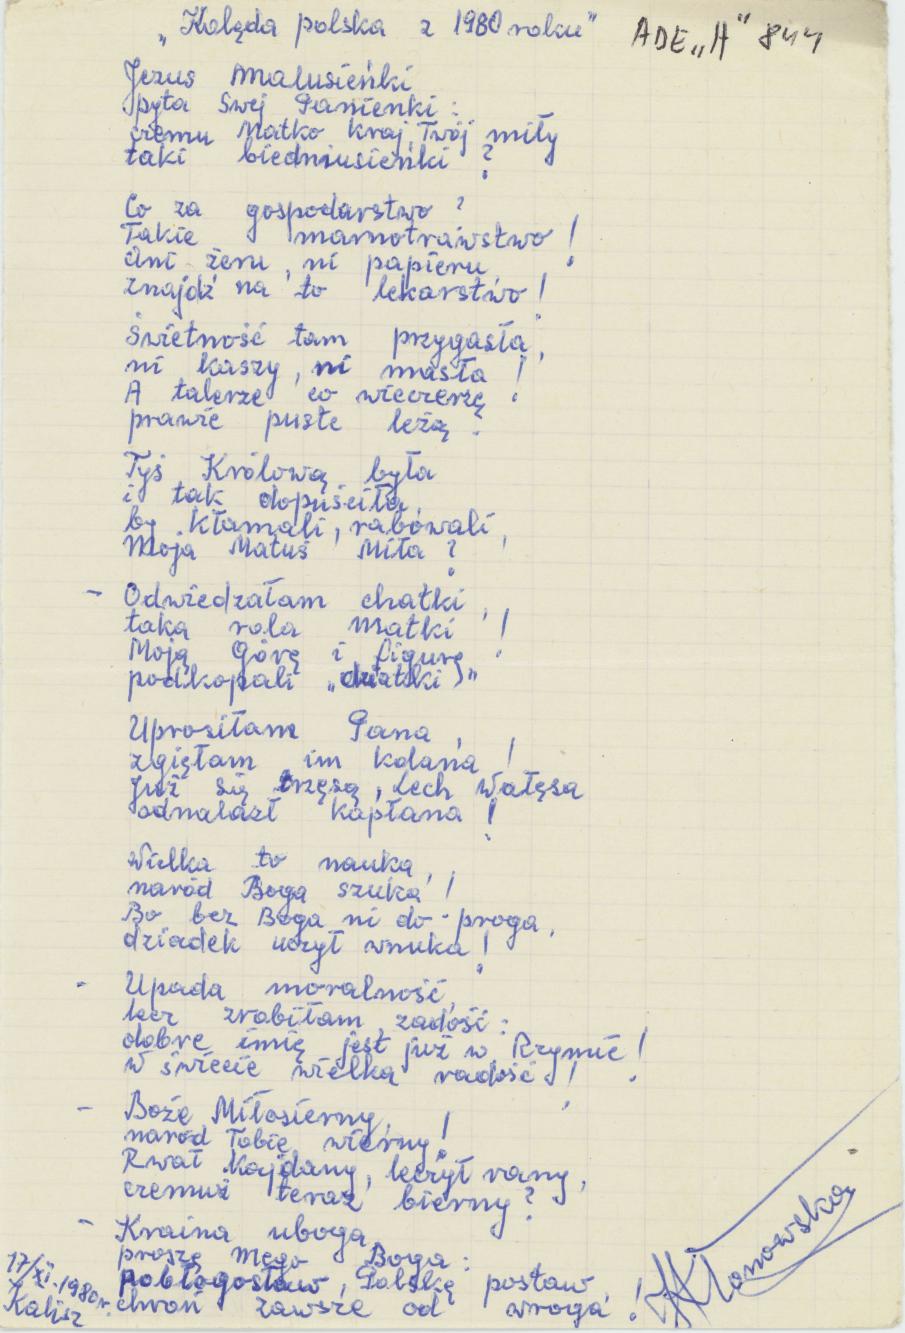 „Kolęda polska z 1980 roku” ADE „A” 844
Jezus Malusieńki
pyta swej Panienki:
czemu Matko kraj Twój miły
taki biedniusieńki?
Co za gospodarstwo?
Takie marnotrawstwo!
ani żeru, ni papieru,
znajdź na to lekarstwo!
Świetność tam przygasła,
ni kaszy, ni masła!
A talerze co wieczerzę
prawie puste leżą!
Tyś Królową była
i tak dopuściła,
by kłamali, rabowali,
Moja Matuś Miła?
- Odwiedzałam chatki,
taka rola matki!
Moją Górę i figurę
podkopali „dziatki”
Uprosiłam Pana,
zgięłam im kolana!
Już się trzęsą, Lech Wałęsa
odnalazł kapłana!
Wielka to nauka,
naród Boga szuka!
Bo bez Boga ni do proga,
dziadek uczył wnuka!
- Upada moralność,
lecz zrobiłam zadość:
dobre imię jest już w Rzymie!
w świecie wielka radość!
- Boże Miłosierny,
naród Tobie wierny!
Rwał kajdany, leczył rany,
czemuż teraz bierny?
- Kraina uboga,
proszę mego Boga:
pobłogosław, Polskę postaw
chroń zawsze od wroga!
17/XI.1980r.
Kalisz